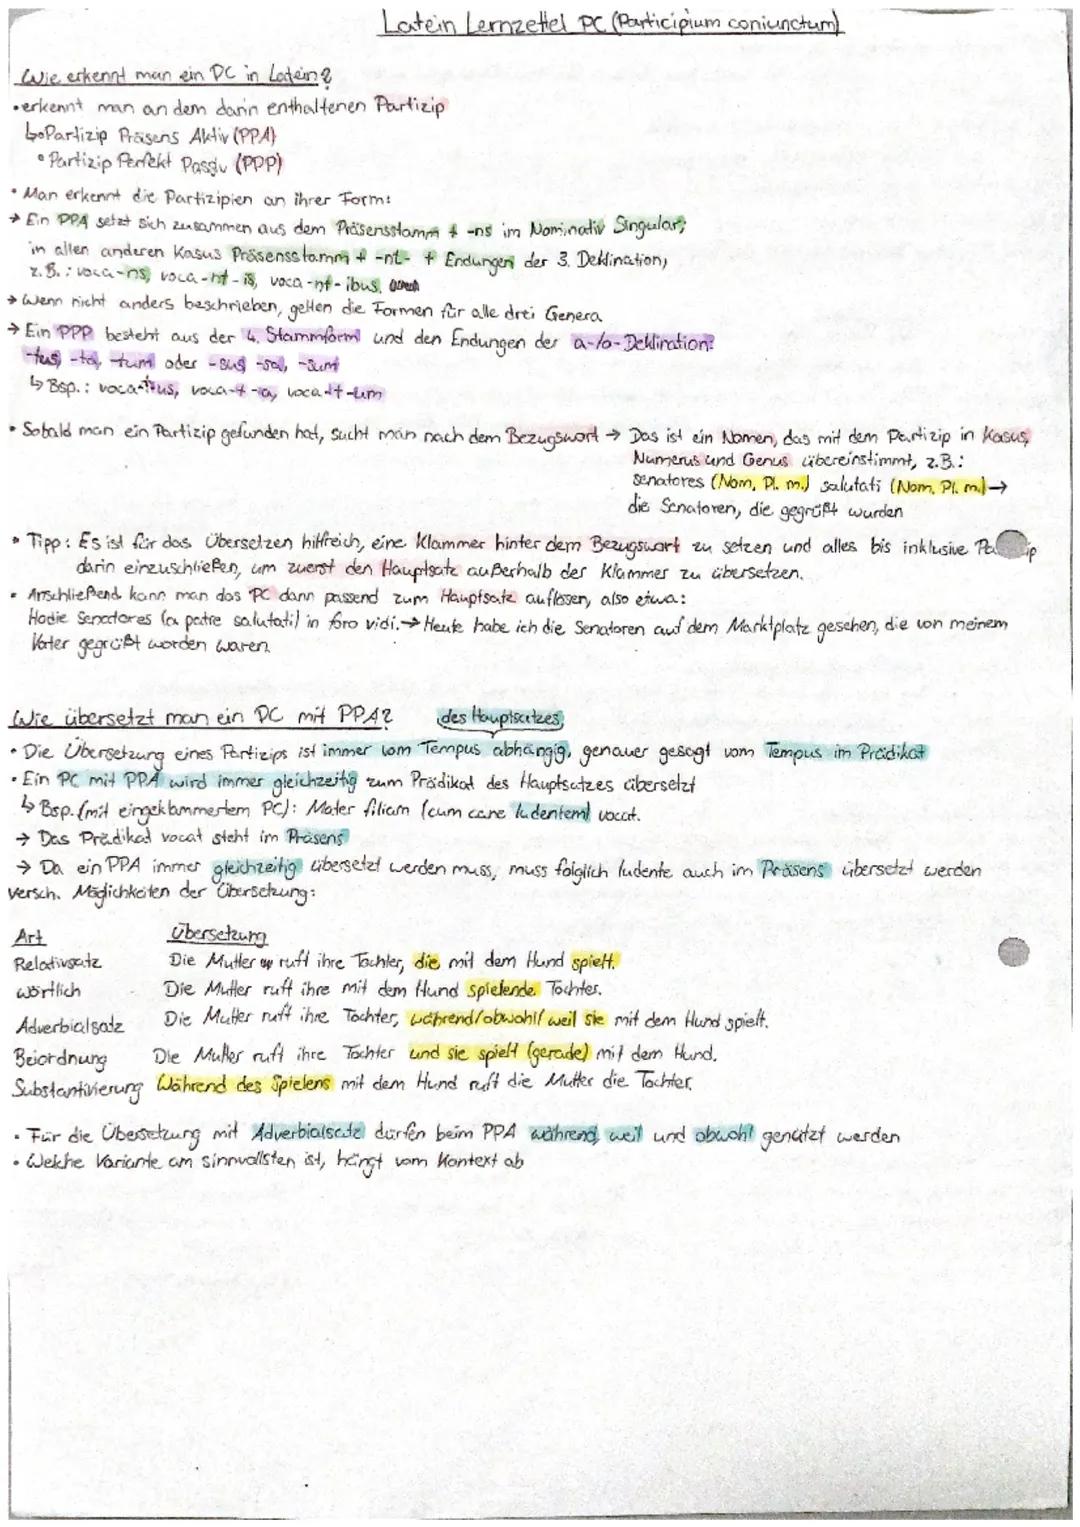 Latein Lernzettel PC (Participium coniunctum)
Wie erkennt man ein PC in Latein?
•erkennt man an dem darin enthaltenen Partizip
↳•Partizip Präsens Aktiv (PPA)
•Partizip Perfekt Passiv (PPP)
• Man erkennt die Partizipien an ihrer Form:
→ Ein PPA setzt sich zusammen aus dem Präsensstamm + -ns im Nominativ Singular;
in allen anderen Kasus Präsensstamm + -nt- + Endungen der 3. Deklination,
z.B.: voca-ns, voca-nt-is, voca-nt-ibus.
→ Wenn nicht anders beschrieben, gelten die Formen für alle drei Genera
→ Ein PPP besteht aus der 4. Stammform und den Endungen der a-/o-Deklination:
-tus, -ta, -tum oder -sus, -sa, -sum
↳ Bsp.: voca-t-us, voca-t-a, voca-t-um
• Sobald man ein Partizip gefunden hat, sucht man nach dem Bezugswort → Das ist ein Nomen, das mit dem Partizip in Kasus,
Numerus und Genus übereinstimmt, z.B.:
senatores (Nom. Pl. m.) salutati (Nom. Pl. m.) →
die Senatoren, die gegrüßt wurden
• Tipp: Es ist für das Übersetzen hilfreich, eine Klammer hinter dem Bezugswort zu setzen und alles bis inklusive Pa ip
darin einzuschließen, um zuerst den Hauptsatz außerhalb der Klammer zu übersetzen.
• Anschließend kann man das PC dann passend zum Hauptsatz auflösen, also etwa:
Hodie Senatores (a patre salutati) in foro vidi. → Heute habe ich die Senatoren auf dem Marktplatz gesehen, die von meinem
Vater gegrüßt worden waren.
Wie übersetzt man ein PC mit PPA?
des Hauptsatzes
• Die Übersetzung eines Partizips ist immer vom Tempus abhängig, genauer gesagt vom Tempus im Prädikat
• Ein PC mit PPA wird immer gleichzeitig zum Prädikat des Hauptsatzes übersetzt
↳ Bsp. (mit eingeklammertem PC): Mater filiam (cum cane ludentem) vocat.
→ Das Prädikat vocat steht im Präsens
→ Da ein PPA immer gleichzeitig übersetzt werden muss, muss folglich ludente auch im Präsens übersetzt werden
versch. Möglichkeiten der Übersetzung:
Art Übersetzung
Relativsatz Die Mutter ruft ihre Tochter, die mit dem Hund spielt.
wörtlich Die Mutter ruft ihre mit dem Hund spielende Tochter.
Adverbialsatz Die Mutter ruft ihre Tochter, während/obwohl/weil sie mit dem Hund spielt.
Beiordnung Die Mutter ruft ihre Tochter und sie spielt (gerade) mit dem Hund.
Substantivierung Während des Spielens mit dem Hund ruft die Mutter die Tochter.
• Für die Übersetzung mit Adverbialsatz dürfen beim PPA während, weil und obwohl genutzt werden
• Welche Variante am sinnvollsten ist, hängt vom Kontext ab